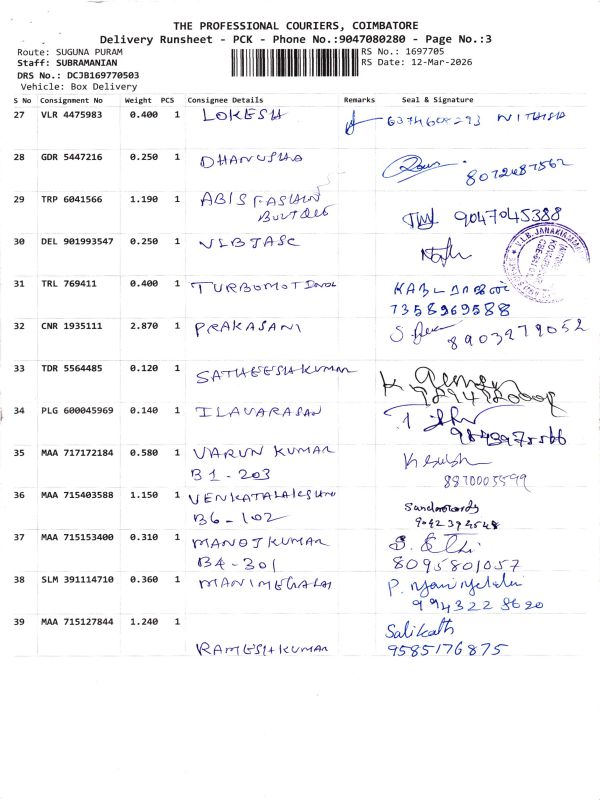 THE PROFESSIONAL COURIERS, COIMBATORE
Delivery Runsheet - PCK - Phone No.:9047080280 - Page No.:3
Route: SUGUNA PURAM
RS No.: 1697705
Staff: SUBRAMANIAN
RS Date: 12-Mar-2026
DRS No.: DCJB169770503
Vehicle: Box Delivery
S No Consignment No Weight PCS Consignee Details Remarks Seal & Signature
27 VLR 4475983 0.400 1 LOKESH
28 GDR 5447216 0.250 1 DHANUSHA
8072487562
29 TRP 6041566 1.190 1 ABIS FASHION
9047045388
30 DEL 901993547 0.250 1 VLBJASC
31 TRL 769411 0.400 1
7358969588
32 CNR 1935111 2.870 1 PRAKASANI
8903279052
33 TDR 5564485 0.120 1 SATHEESHKUMAR
34 PLG 600045969 0.140 1 ILAVARASAN
35 MAA 717172184 0.580 1 VARUN KUMAR
B1-203
8870005599
36 MAA 715403588 1.150 1
B6-102
37 MAA 715153400 0.310 1 MANOJKUMAR
B4-301
8095801057
38 SLM 391114710 0.360 1 MANIMEGALAI
9943228620
39 MAA 715127844 1.240 1
Salikath
RAMESHKUMAR 9585176875